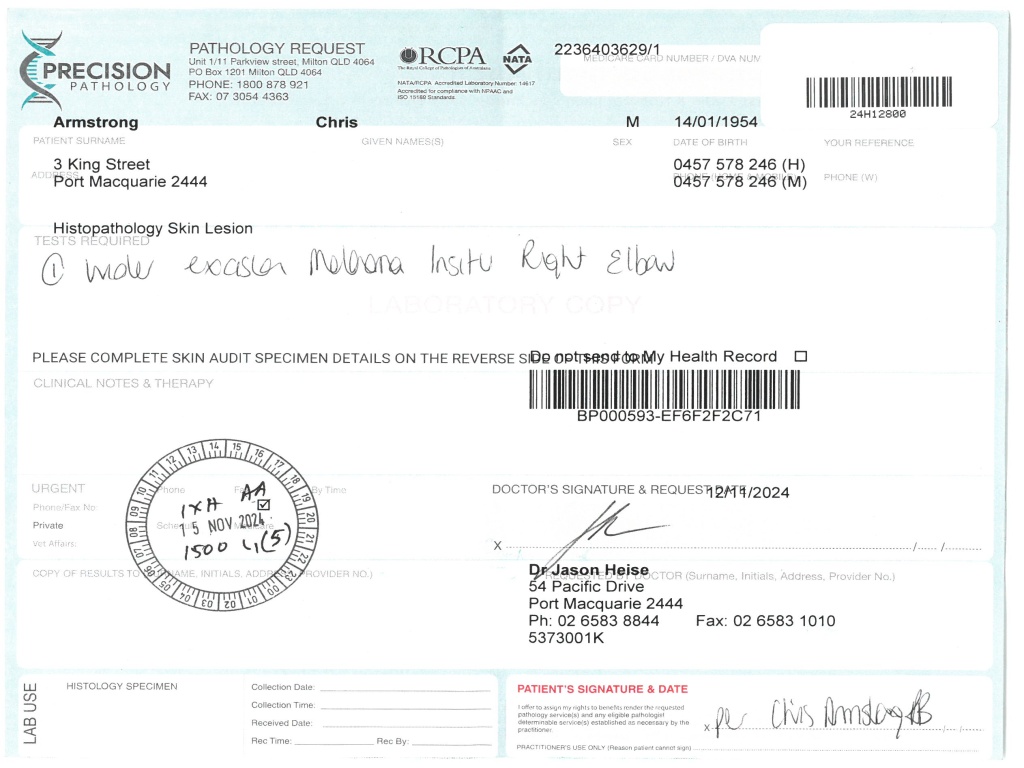 PRECISION
PATHOLOGY
PATHOLOGY REQUEST
Unit 1/11 Parkview street, Milton QLD 4064
PO Box 1201 Milton QLD 4064
PHONE: 1800 878 921
FAX: 07 3054 4363
RCPA
The Royal College of Pathologists of Australasia
NATA
NATA/RCPA Accredited Laboratory Number: 14617
Accredited for compliance with NPAAC and
ISO 15189 Standards
2236403629/1
MEDICARE CARD NUMBER / DVA NUM
24H12800
Armstrong Chris M 14/01/1954
PATIENT SURNAME GIVEN NAMES(S) SEX DATE OF BIRTH YOUR REFERENCE
3 King Street 0457 578 246 (H)
ADDRESS PHONE (HOME & MOBILE) PHONE (W)
Port Macquarie 2444 0457 578 246 (M)
Histopathology Skin Lesion
TESTS REQUIRED
① wider excision Melanoma Insitu Right Elbow
LABORATORY COPY
PLEASE COMPLETE SKIN AUDIT SPECIMEN DETAILS ON THE REVERSE SIDE OF THIS FORM
Do not send to My Health Record ☐
CLINICAL NOTES & THERAPY
BP000593-EF6F2F2C71
URGENT Phone Fax By Time
Phone/Fax No:
Private Schedule Medicare
Vet Affairs:
07 08 09 10 11 12 13 14 15 16 17 18 19 20 21 22 23 00 01 02 03 04 05 06
1XH AA
15 NOV 2024
1500 (5)
DOCTOR'S SIGNATURE & REQUEST DATE
12/11/2024
X / /
COPY OF RESULTS TO NAME, INITIALS, ADDR PROVIDER NO.)
Dr Jason Heise
REQUESTED BY DOCTOR (Surname, Initials, Address, Provider No.)
54 Pacific Drive
Port Macquarie 2444
Ph: 02 6583 8844 Fax: 02 6583 1010
5373001K
LAB USE
HISTOLOGY SPECIMEN
Collection Date:
Collection Time:
Received Date:
Rec Time: Rec By:
PATIENT'S SIGNATURE & DATE
I offer to assign my rights to benefits render the requested
pathology service(s) and any eligible pathologist
determinable service(s) established as necessary by the
practitioner.
x per Chris Armstrong / /
PRACTITIONER'S USE ONLY (Reason patient cannot sign)